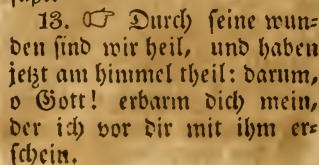 13. ☞ Durch seine wun=
den sind wir heil, und haben
jetzt am himmel theil: darum,
o Gott! erbarm dich mein,
der ich vor dir mit ihm er=
schein.